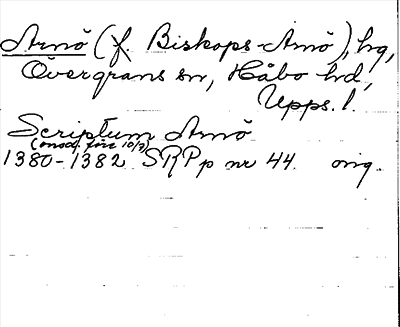 Arnö (f. Biskops-Arnö), hg,
Övergrans sn, Håbo hd,
Upps. l.
Scriptum Arnö
(onsd. före 10/7)
1380-1382 SRPp nr 44. orig.